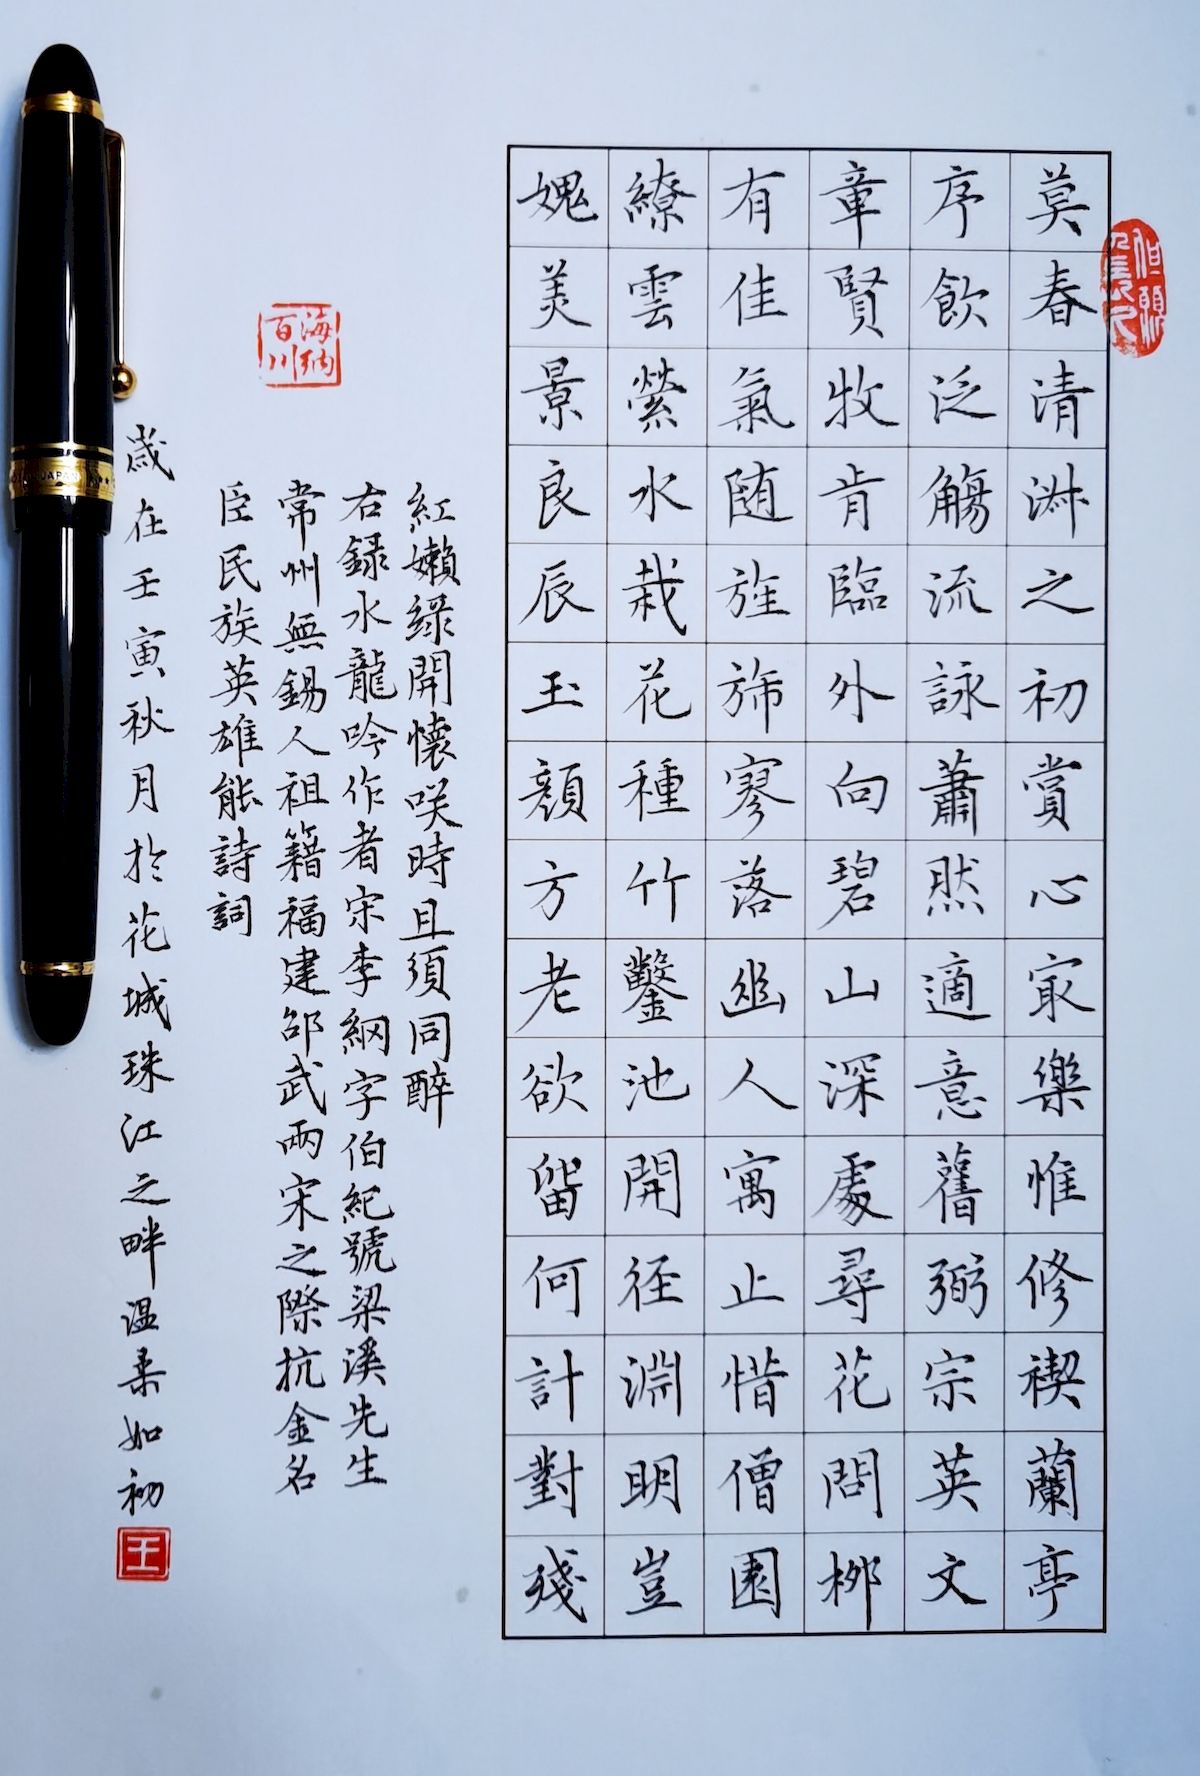 莫春清淑之初賞心冣樂惟修禊蘭亭
序飲泛觴流詠蕭然適意舊弼宗英文
章賢牧肯臨外向碧山深處尋花問柳
有佳氣随旌斾寥落幽人寓止惜僧園
繚雲縈水栽花種竹鑿池開徑淵明豈
媿美景良辰玉顏方老欲留何計對殘
紅嬾綠開懷咲時且須同醉
右録水龍吟作者宋李綱字伯紀號梁溪先生
常州無錫人祖籍福建邵武兩宋之際抗金名
臣民族英雄能詩詞
歲在壬寅秋月於花城珠江之畔溫柔如初
海納百川
王
JAPAN